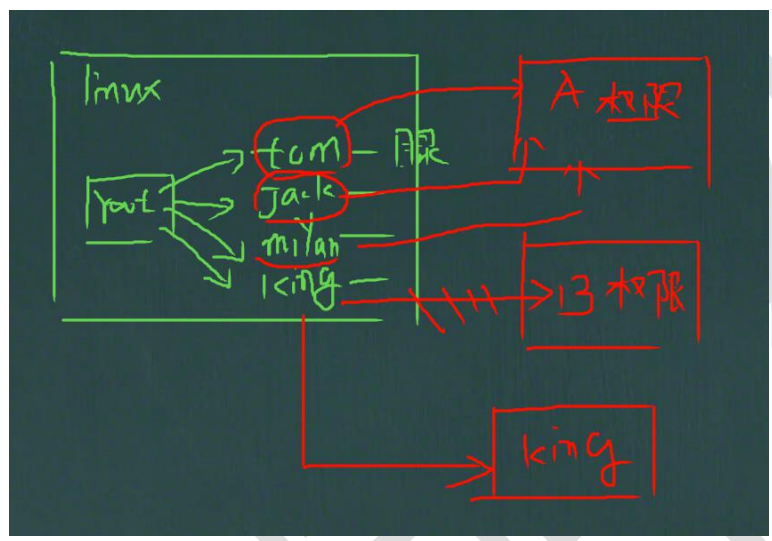 linux
tom
Jack
milan
king
A 权限
B 权限
king